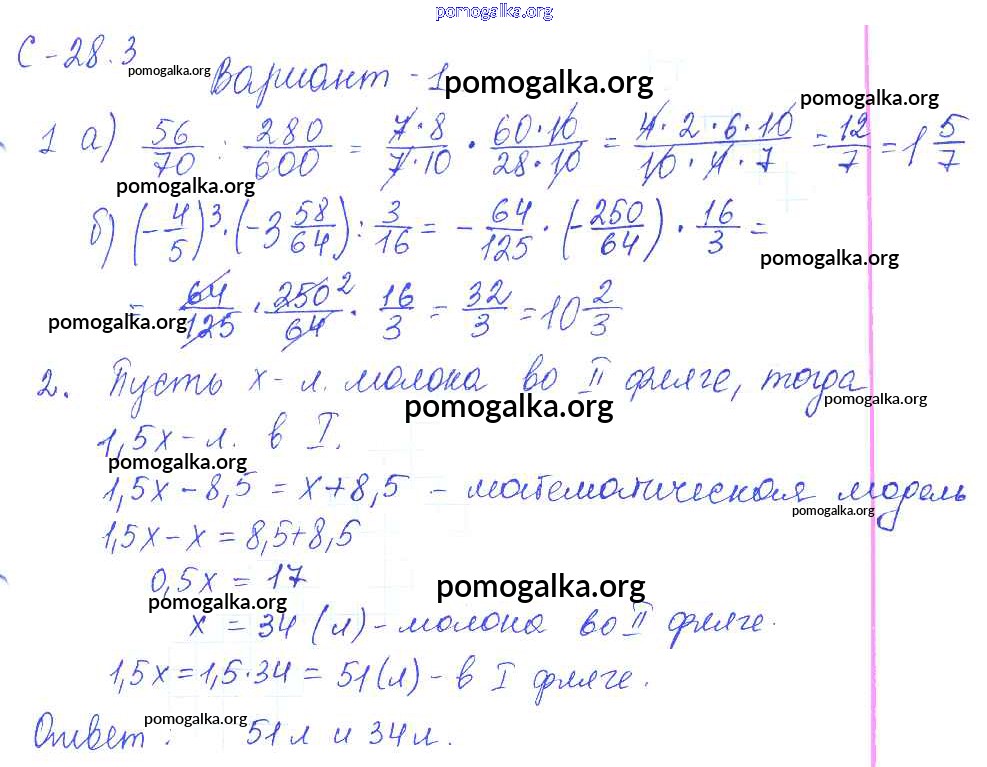 pomogalka.org
С-28.3
pomogalka.org
Вариант - 1
pomogalka.org
pomogalka.org
1 а) 56/70 : 280/600 = 7·8/7·10 · 60·10/28·10 = 4·2·6·10/10·4·7 = 12/7 = 1 5/7
pomogalka.org
б) (-4/5)³·(-3 58/64) : 3/16 = - 64/125 · (-250/64) · 16/3 =
pomogalka.org
= 64/125 · 250²/64 · 16/3 = 32/3 = 10 2/3
pomogalka.org
2. Пусть x - л. молока во II фляге, тогда
pomogalka.org
pomogalka.org
1,5x - л. в I.
pomogalka.org
1,5x - 8,5 = x + 8,5 - математическая модель
pomogalka.org
1,5x - x = 8,5 + 8,5
0,5x = 17
pomogalka.org
pomogalka.org
x = 34 (л) - молока во II фляге.
1,5x = 1,5·34 = 51 (л) - в I фляге.
pomogalka.org
Ответ: 51 л и 34 л.